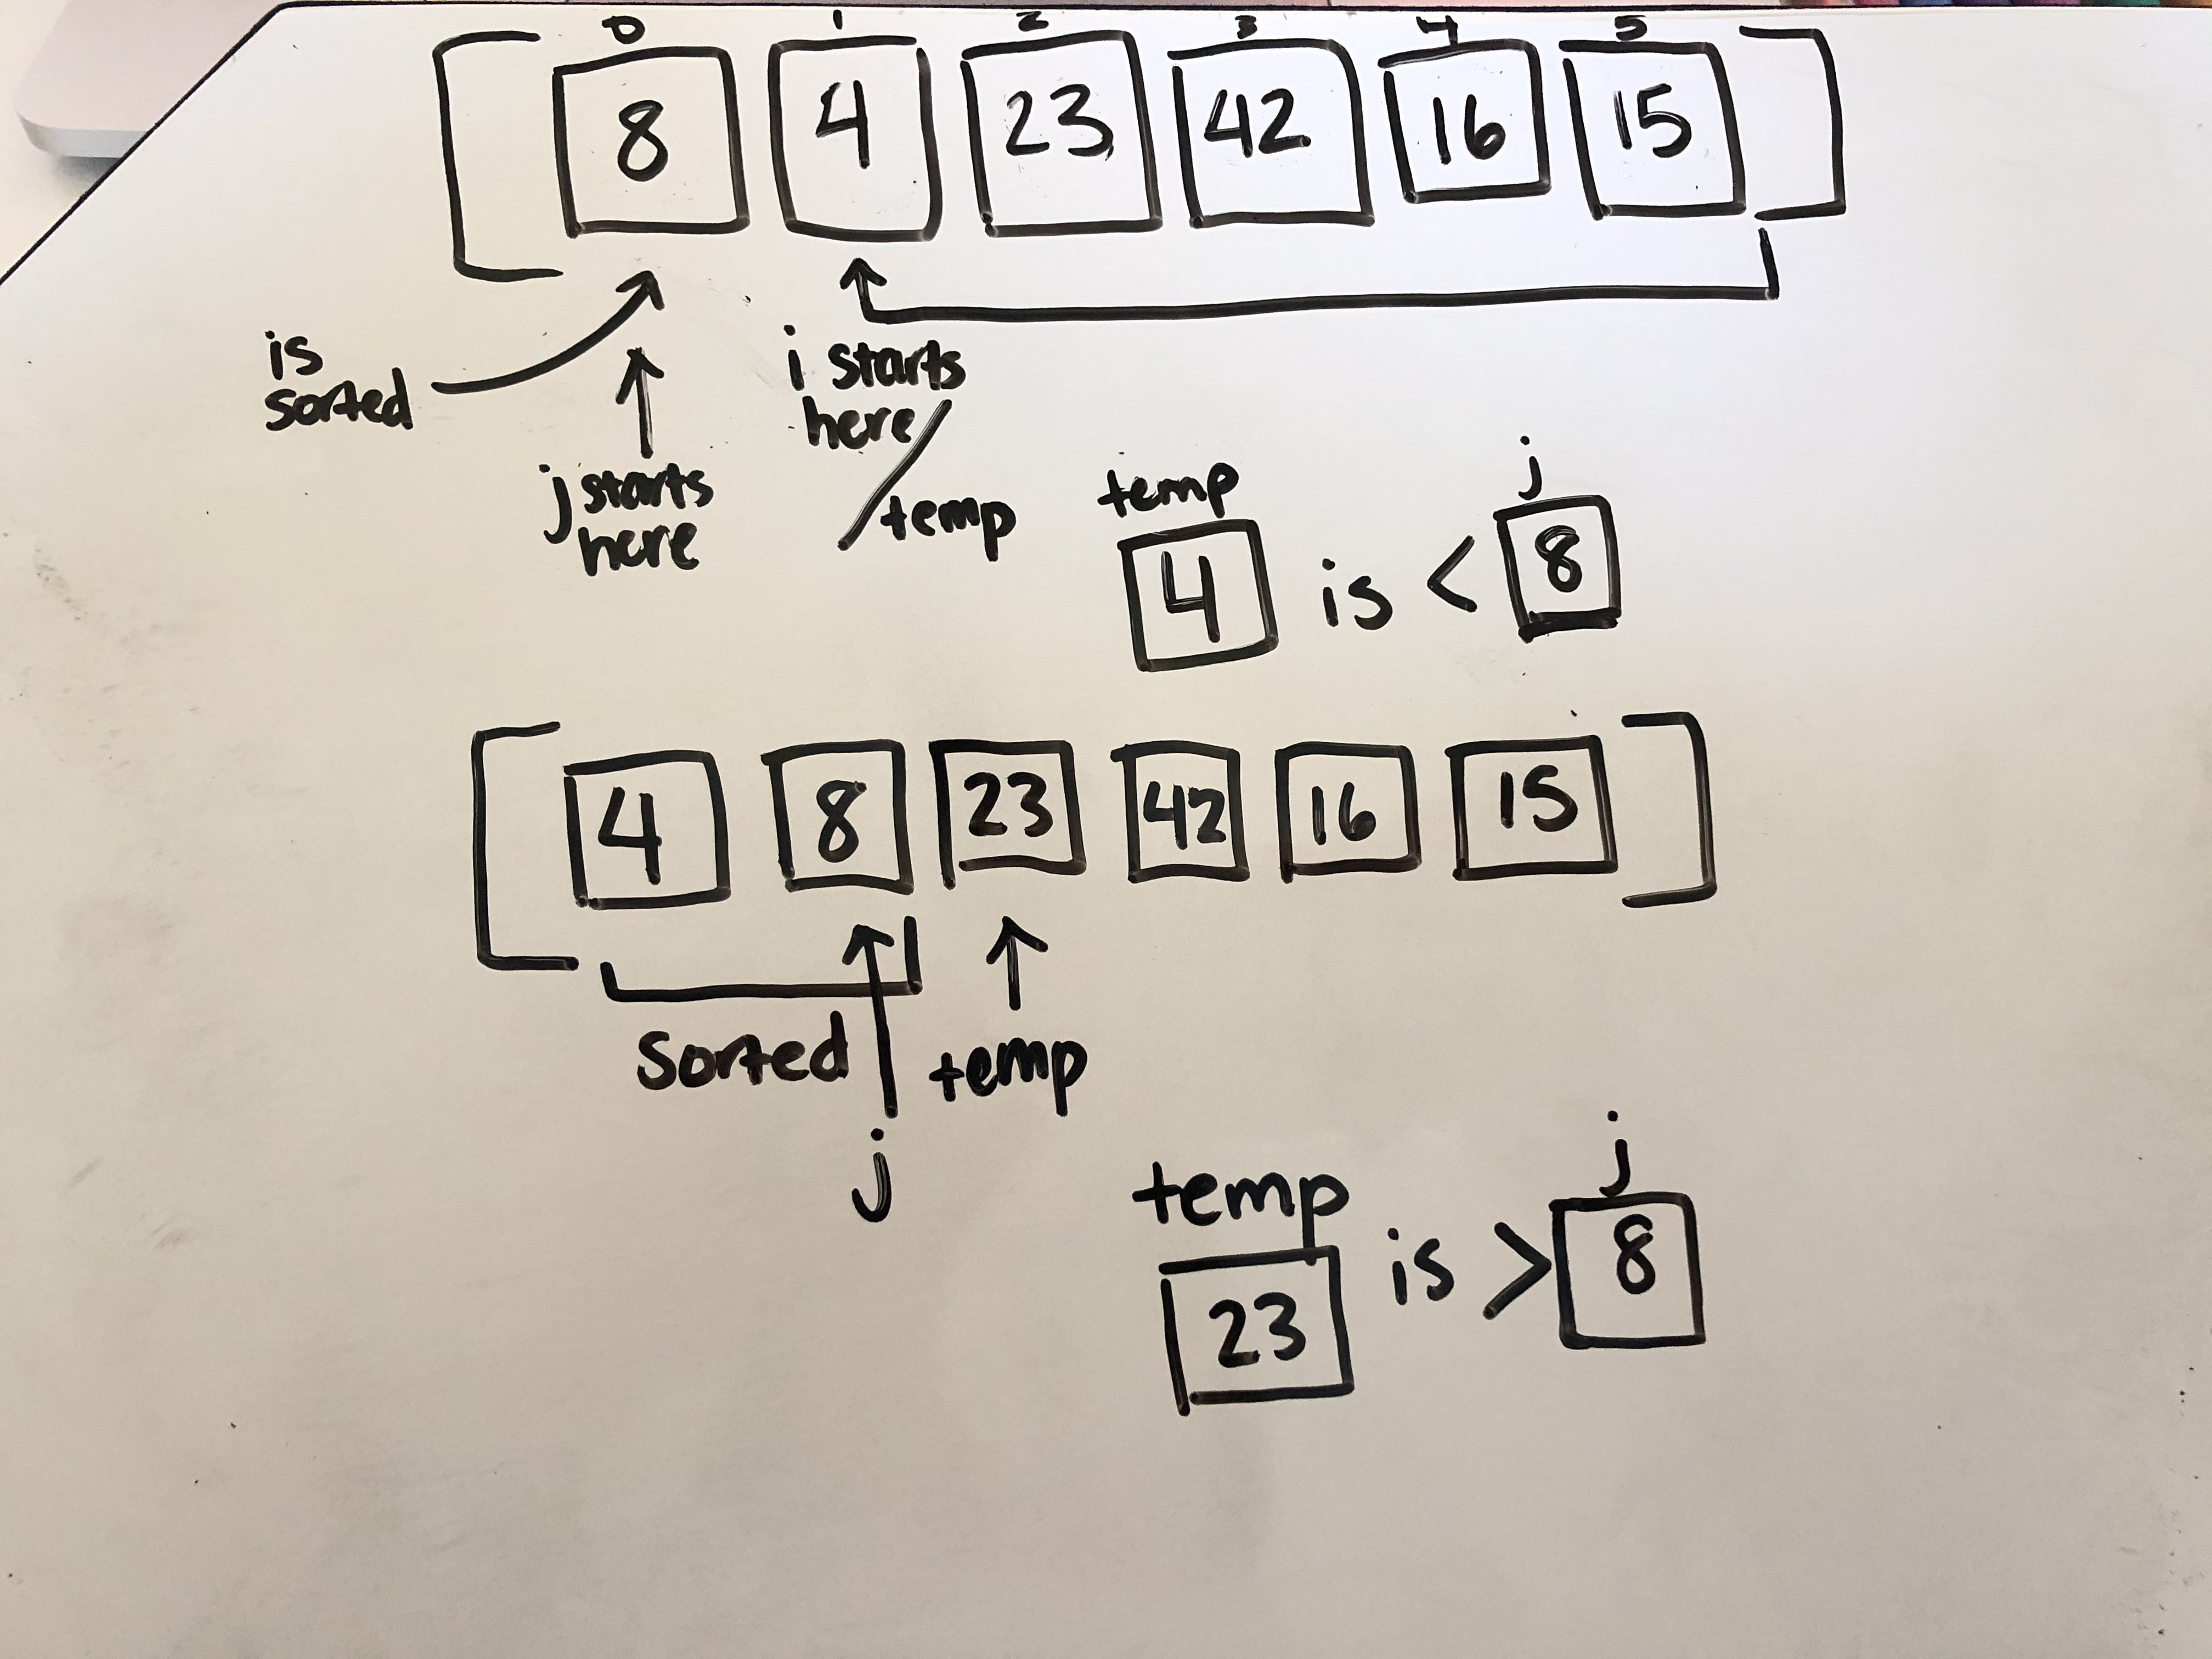 0 1 2 3 4 5
[ 8 4 23 42 16 15 ]
is
sorted
j starts
here
i starts
here / temp
temp j
4 is < 8
[ 4 8 23 42 16 15 ]
Sorted temp
j
temp j
23 is > 8